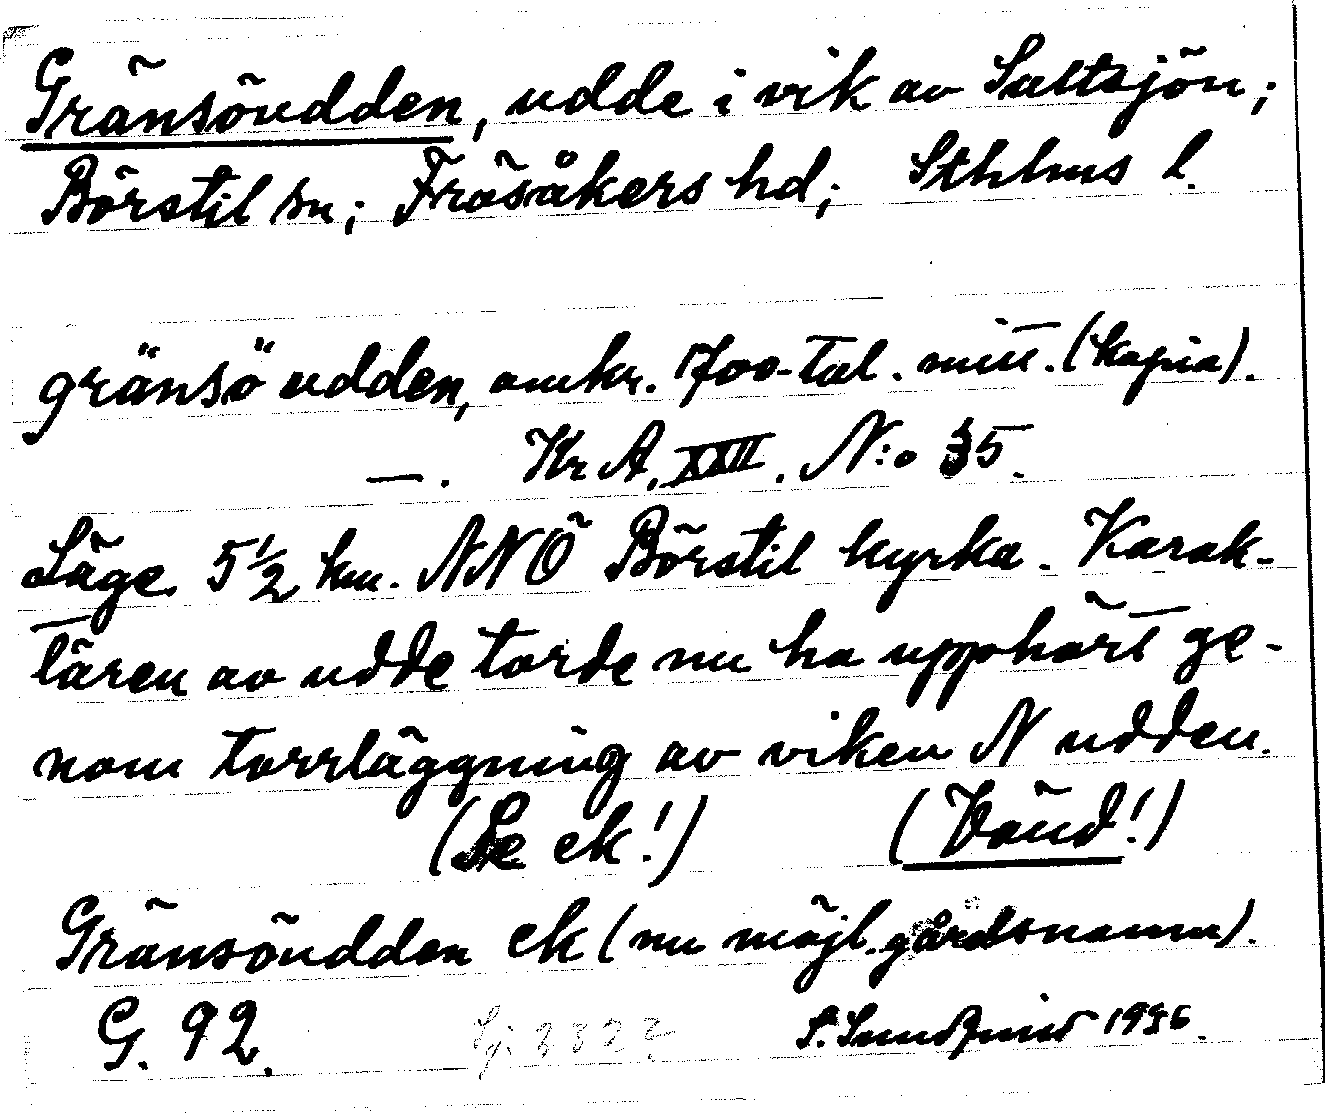 Gränsöudden, udde i vik av Saltsjön;
Börstil sn; Frösåkers hd; Sthlms l.
gränsö udden, omkr. 1700-tal. mitt. (kopia).
—. Kr A, XXII. N:o 35.
Läge 5 1/2 km. NNÖ Börstil kyrka. Karak-
tären av udde torde nu ha upphört ge-
nom torrläggning av viken N udden.
(Se ek!) (Vänd!)
Gränsöudden ek (nu möjl. gårdsnamn).
G. 92. 1936.